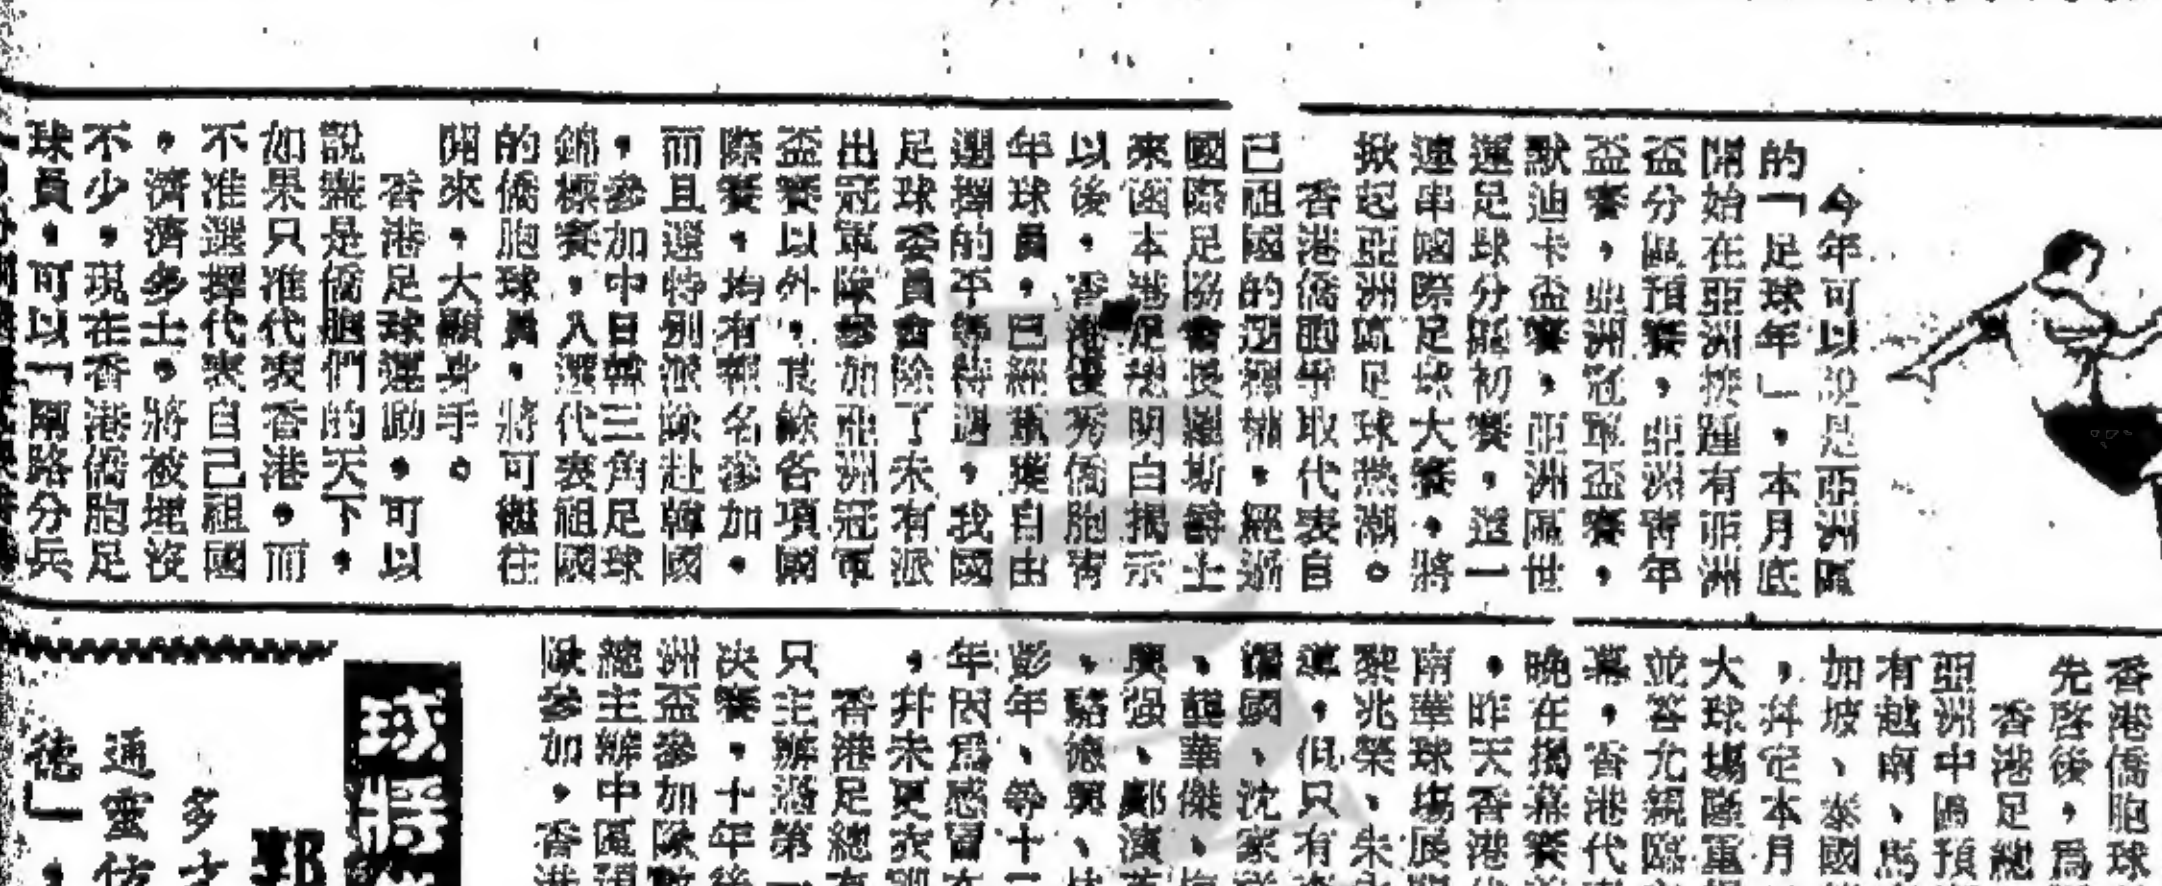 今年可以說是亞洲區
的「足球年」，本月底
開始在亞洲接踵有亞洲
盃分區預賽，亞洲青年
盃賽，亞洲冠軍盃賽，
默迪卡盃賽，亞洲區世
運足球分區初賽，這一
連串國際足球大賽，將
掀起亞洲區足球熱潮。
香港僑胞爭取代表自
已祖國的
國際足協會長羅斯爵士
來函本港足總明白揭示
以後，香港優秀僑胞青
年球員，已經 自由
選擇的平等待遇，我國
足球委員會除了未有派
出冠軍隊參加亞洲冠軍
盃賽以外，其餘各項國
際賽，均有報名參加，
而且還特別派隊赴韓國
，參加中日韓三角足球
錦標賽，入選代表祖國
的僑胞球員，將可繼往
開來，大顯身手。
香港足球運動，可以
說幾是僑胞們的天下，
如果只准代表香港，而
不准選擇代表自己祖國
，濟濟多士，將被埋沒
不少，現在香港僑胞足
球員，可以「兩路分兵
香港僑胞球
先啓後，爲
香港足總
亞洲中區預
有越南、馬
加坡、泰國
，幷定本月
大球場隆重
並答允親臨
幕，香港代
晚在揭幕賽
，昨天香港
南華球場展
黎兆榮、朱
，但只有
國、沈家
、龔華傑、
興强、鄺演
、駱德興、
彭年、等十
年因爲感冒在
，幷未更衣
香港足總有
只主辦過第一
決賽，十年後
洲盃參加隊數
總主辦中區預
隊參加，香港
球將
郭
多才
通靈
德」，